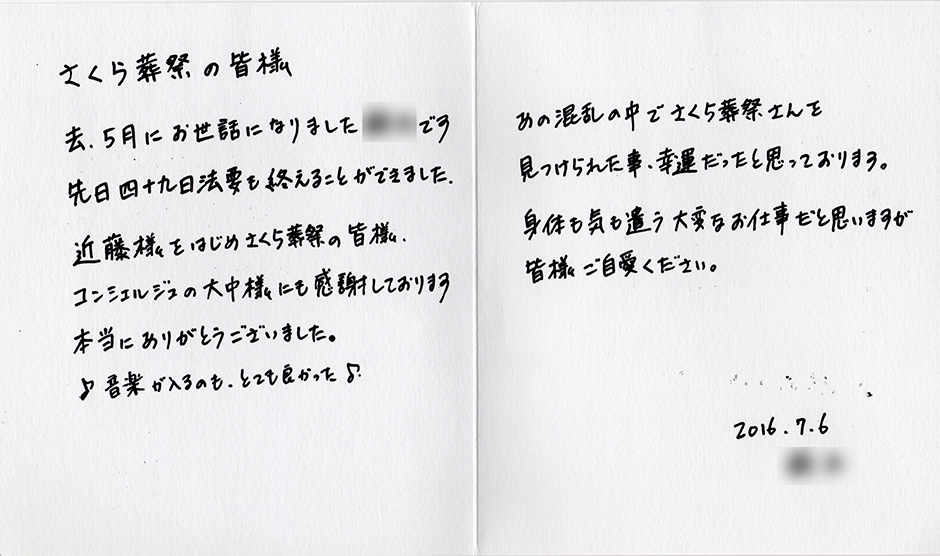 さくら葬祭の皆様
去、5月にお世話になりました です
先日四十九日法要も終えることができました.
近藤様をはじめさくら葬祭の皆様.
コンシェルジュの大中様にも感謝しております
本当にありがとうございました。
♪音楽が入るのも、とても良かった♪
あの混乱の中でさくら葬祭さんを
見つけられた事、幸運だったと思っております。
身体も気も遣う大変なお仕事だと思いますが
皆様ご自愛ください。
2016.7.6